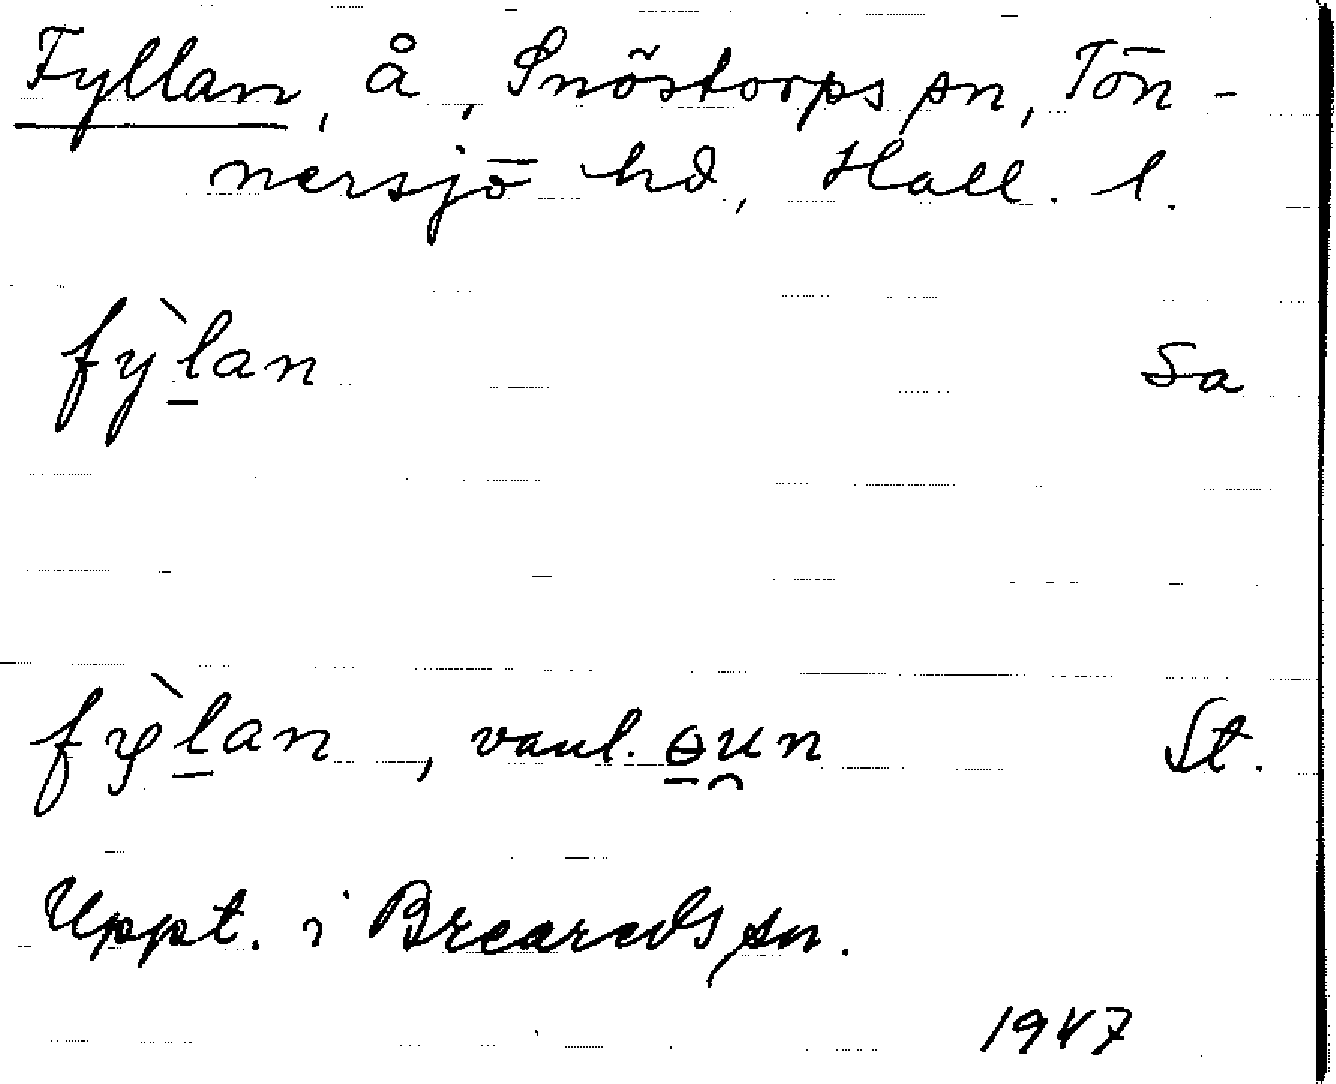 Fyllan, å, Snöstorps sn, Tön-
nersjö hd, Hall. l.
fỳl̲an Sa
fỳl̲an, vanl. ɵ̲u̯n St.
Uppt. i Breareds sn.
1947